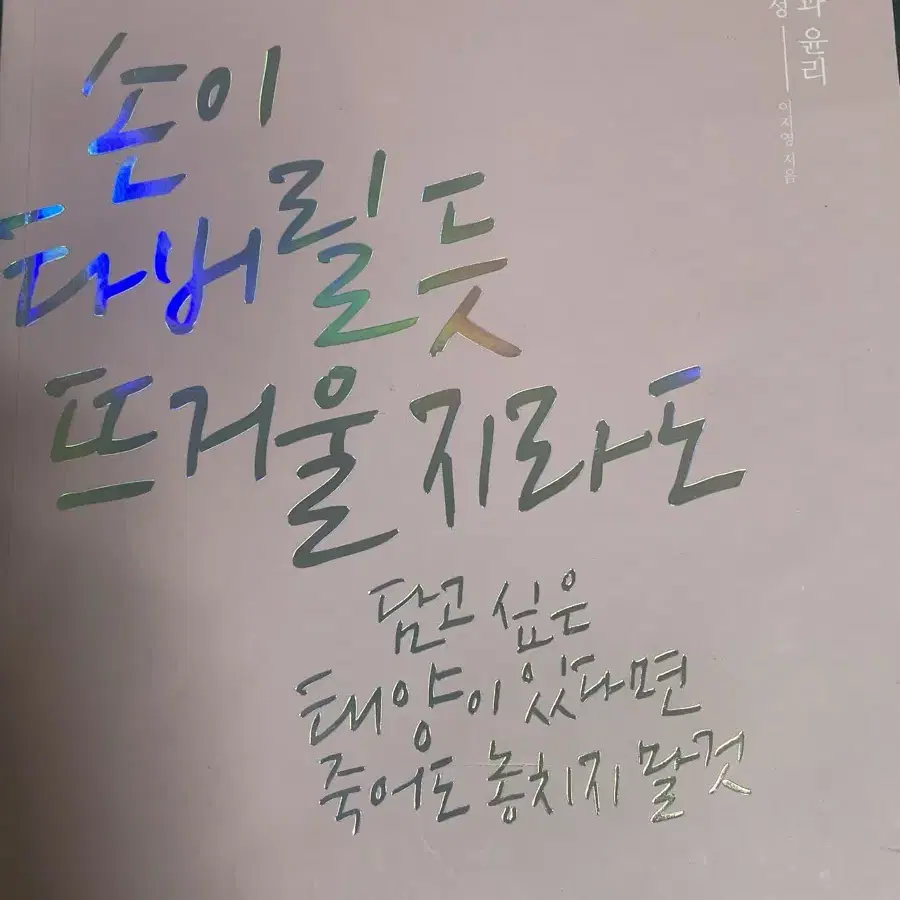 과 윤리
성
이지영 지음
손이
타버릴 듯
뜨거울지라도
담고 싶은
태양이 있다면
죽어도 놓치지 말 것